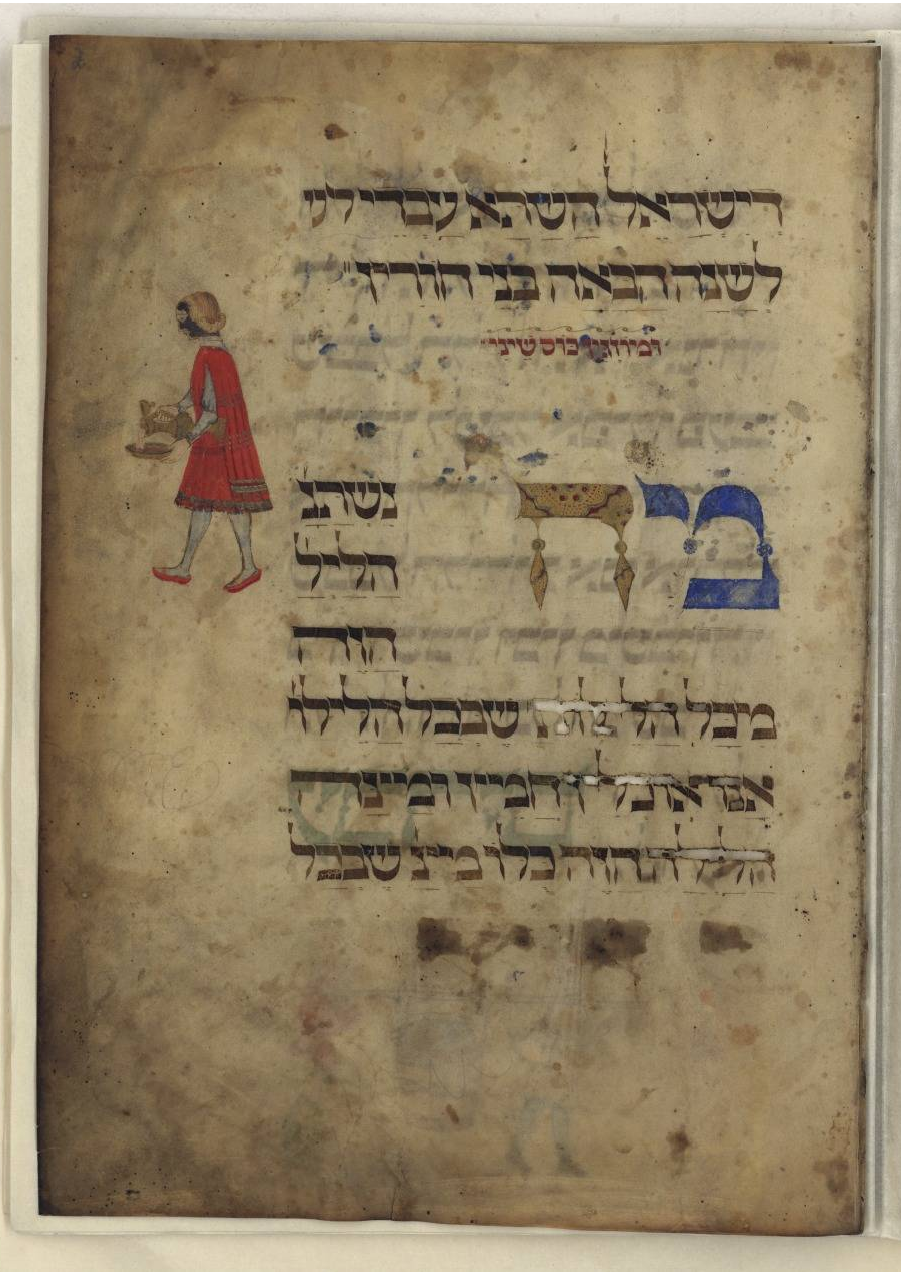 דישראל השתא עבדי לש
לשנה הבאה בני חורין
ומוזגין כוס שיני
מה
נשתנ
הליל
הזה
מכל הלילות שבכל הלילו
אנו אוכלין חמיץ ומיצה
הלילה הזה כלו מיצ שבכל